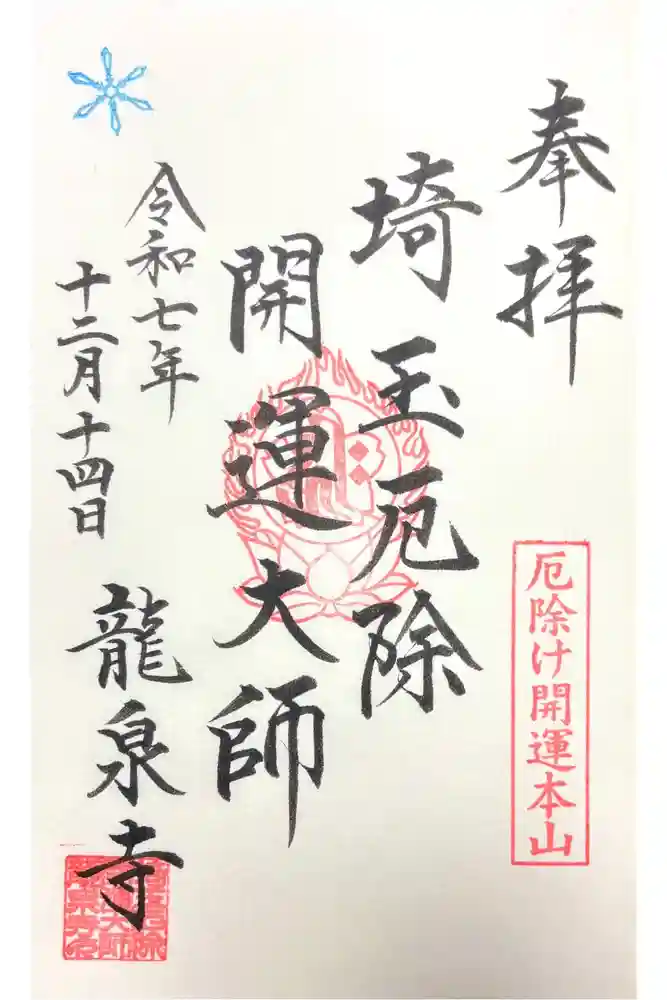 奉拝
厄除け開運本山
埼玉厄除
開運大師
令和七年
十二月十四日
龍泉寺